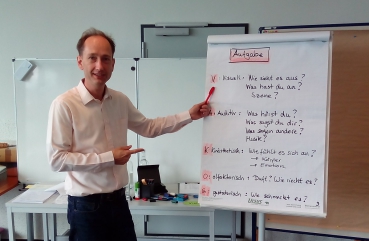 Aufgabe
V isuell: Wie sieht es aus?
Was hast du an?
Szene?
Auditiv: Was hörst du?
Was sagst du dir?
Was sagen andere?
Musik?
K inästhetisch: Wie fühlt es sich an?
→ Körper
→ Emotionen
O lfaktorisch: Duft? Wie riecht es?
G ustatorisch: Wie schmeckt es?